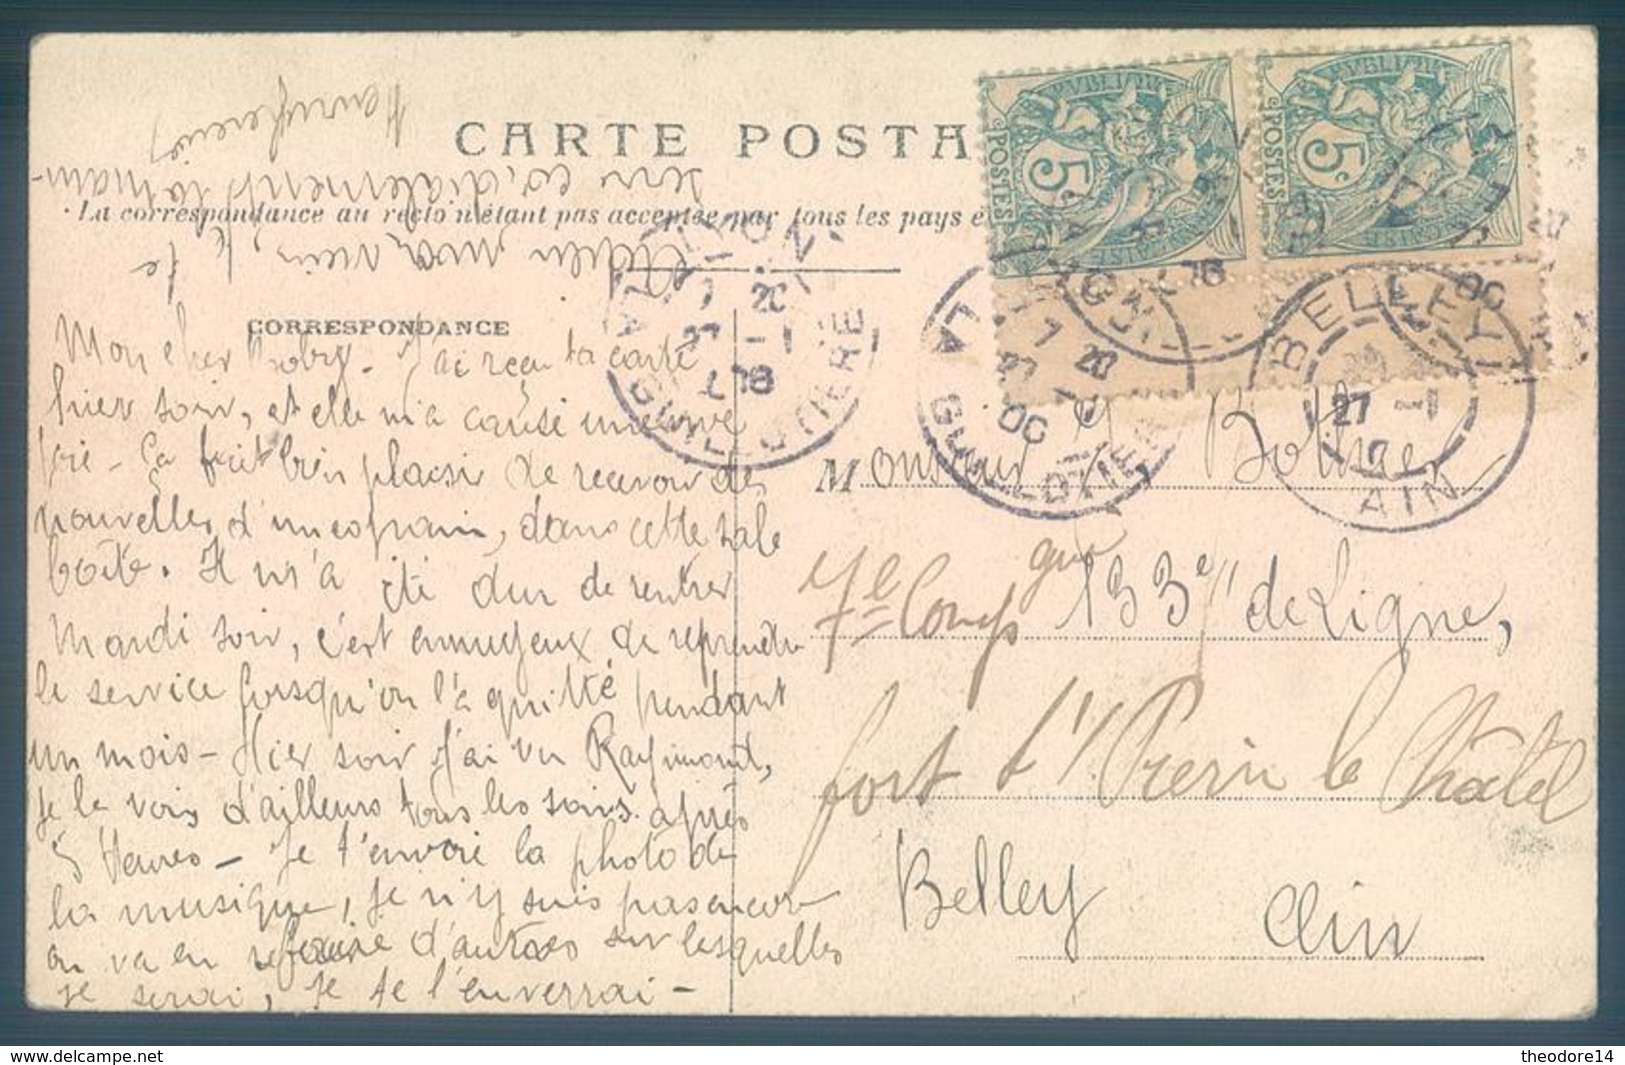 CARTE POSTA
La correspondance au recto n'étant pas acceptée par tous les pays é
CORRESPONDANCE
Mon cher J'ai reçu ta carte
hier soir, et elle m'a causé une vive
joie - Ça fait bien plaisir de recevoir des
nouvelles d'un copain, dans cette sale
boîte. Il m'a été dur de rentrer
Mardi soir, c'est ennuyeux de reprendre
le service lorsqu'on l'a quitté pendant
un mois - Hier soir j'ai vu Raymond,
je le vois d'ailleurs tous les soirs après
5 heures - Je t'envoie la photo de
la musique, je n'y suis pas encore
on va en refaire d'autres sur lesquelles
je serai, je te l'enverrai -
Adieu mon vieux, je te
serre cordialement la main
RÉPUBLIQUE
5c
POSTES
RÉPUBLIQUE
5c
POSTES
LA GUILLOTIERE
LYON
LA GUILLOTIERE
BELLEY
27 -1
AIN
Monsieur Bolmier
7e Comp gnie 133e de Ligne,
fort l'/
le Châtel
Belley Ain
theodore14